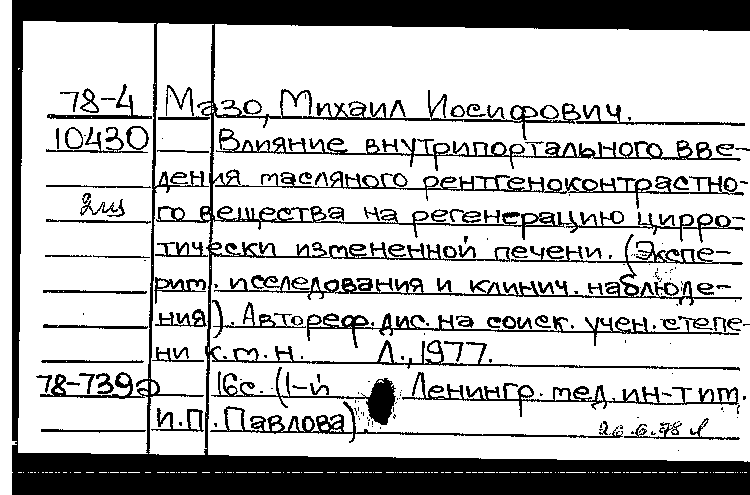 78-4 Мазо, Михаил Иосифович.
10430 Влияние внутрипортального вве-
дения масляного рентгеноконтрастно-
2 го вещества на регенерацию цирро-
тически измененной печени. (Экспе-
рим. исследования и клинич. наблюде-
ния). Автореф. дис. на соиск. учен. степе-
ни к.м.н. Л., 1977.
78-739 16с. (1-й Ленингр. мед. ин-т им.
И.П. Павлова).
26.6.78